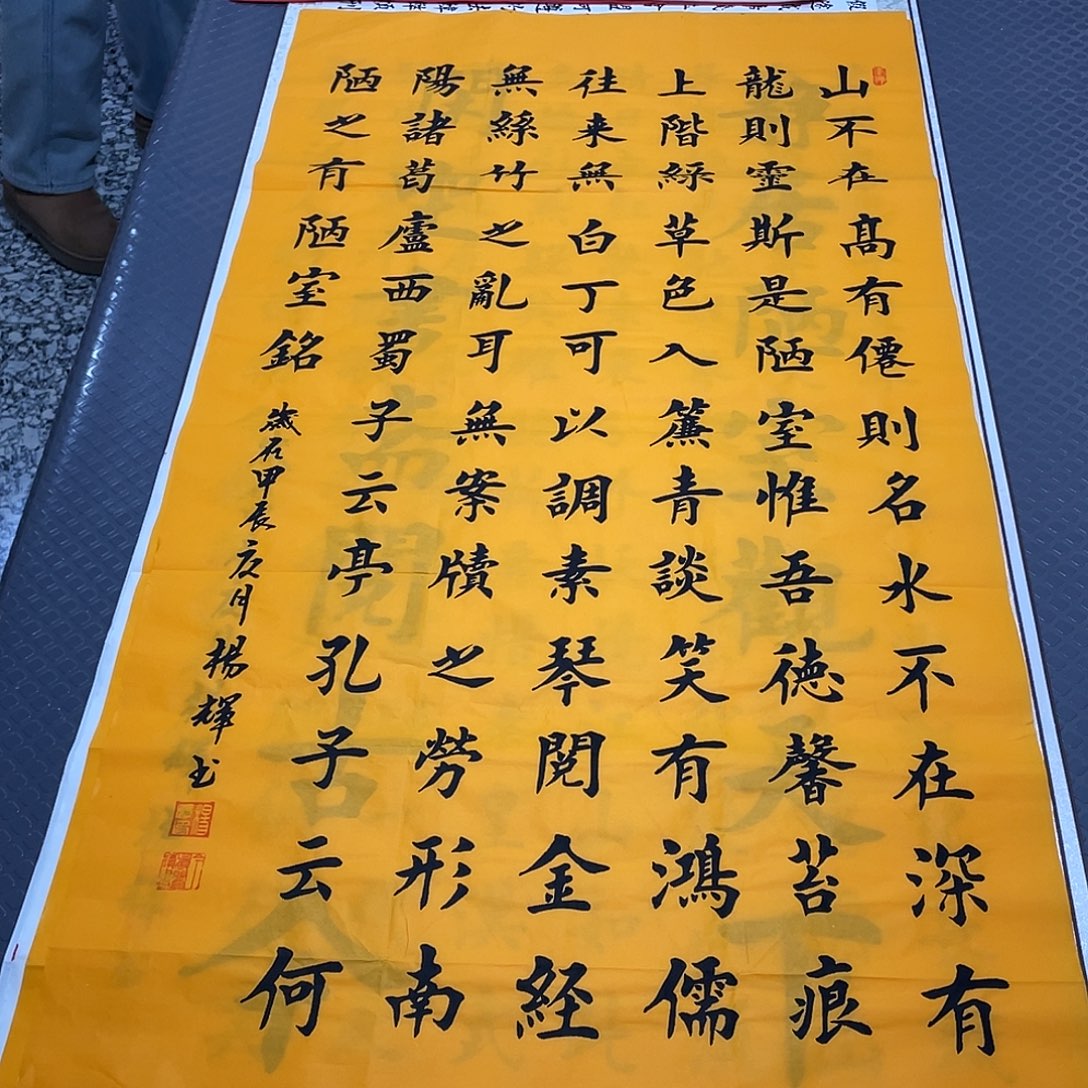 山不在髙有僊則名水不在深有
龍則靈斯是陋室惟吾德馨苔痕
上階綠草色入簾青談笑有鴻儒
往来無白丁可以調素琴閱金経
無絲竹之亂耳無案牘之勞形南
陽諸葛廬西蜀子云亭孔子云何
陋之有陋室銘
歲在甲辰月楊輝书